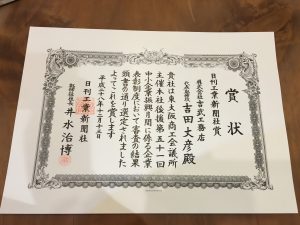 賞状
日刊工業新聞社賞
株式会社吉武工務店
代表取締役 吉田大彦殿
貴社は東大阪商工会議所
主催本社後援第五十一回
中小企業振興月間に係る企業
表彰制度において審査の結果
頭書の通り選定されました
よってこれを賞します
平成二十八年十二月十三日
日刊工業新聞社
井水治博